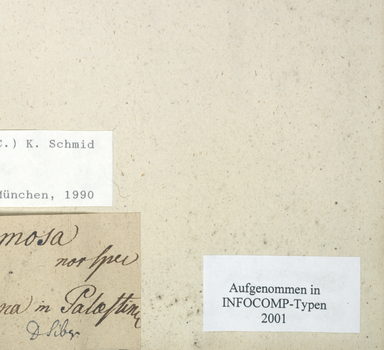 C.) K. Schmid
München, 1990
mosa
nov spec
na in Palæstina
D Siber
Aufgenommen in
INFOCOMP-Typen
2001